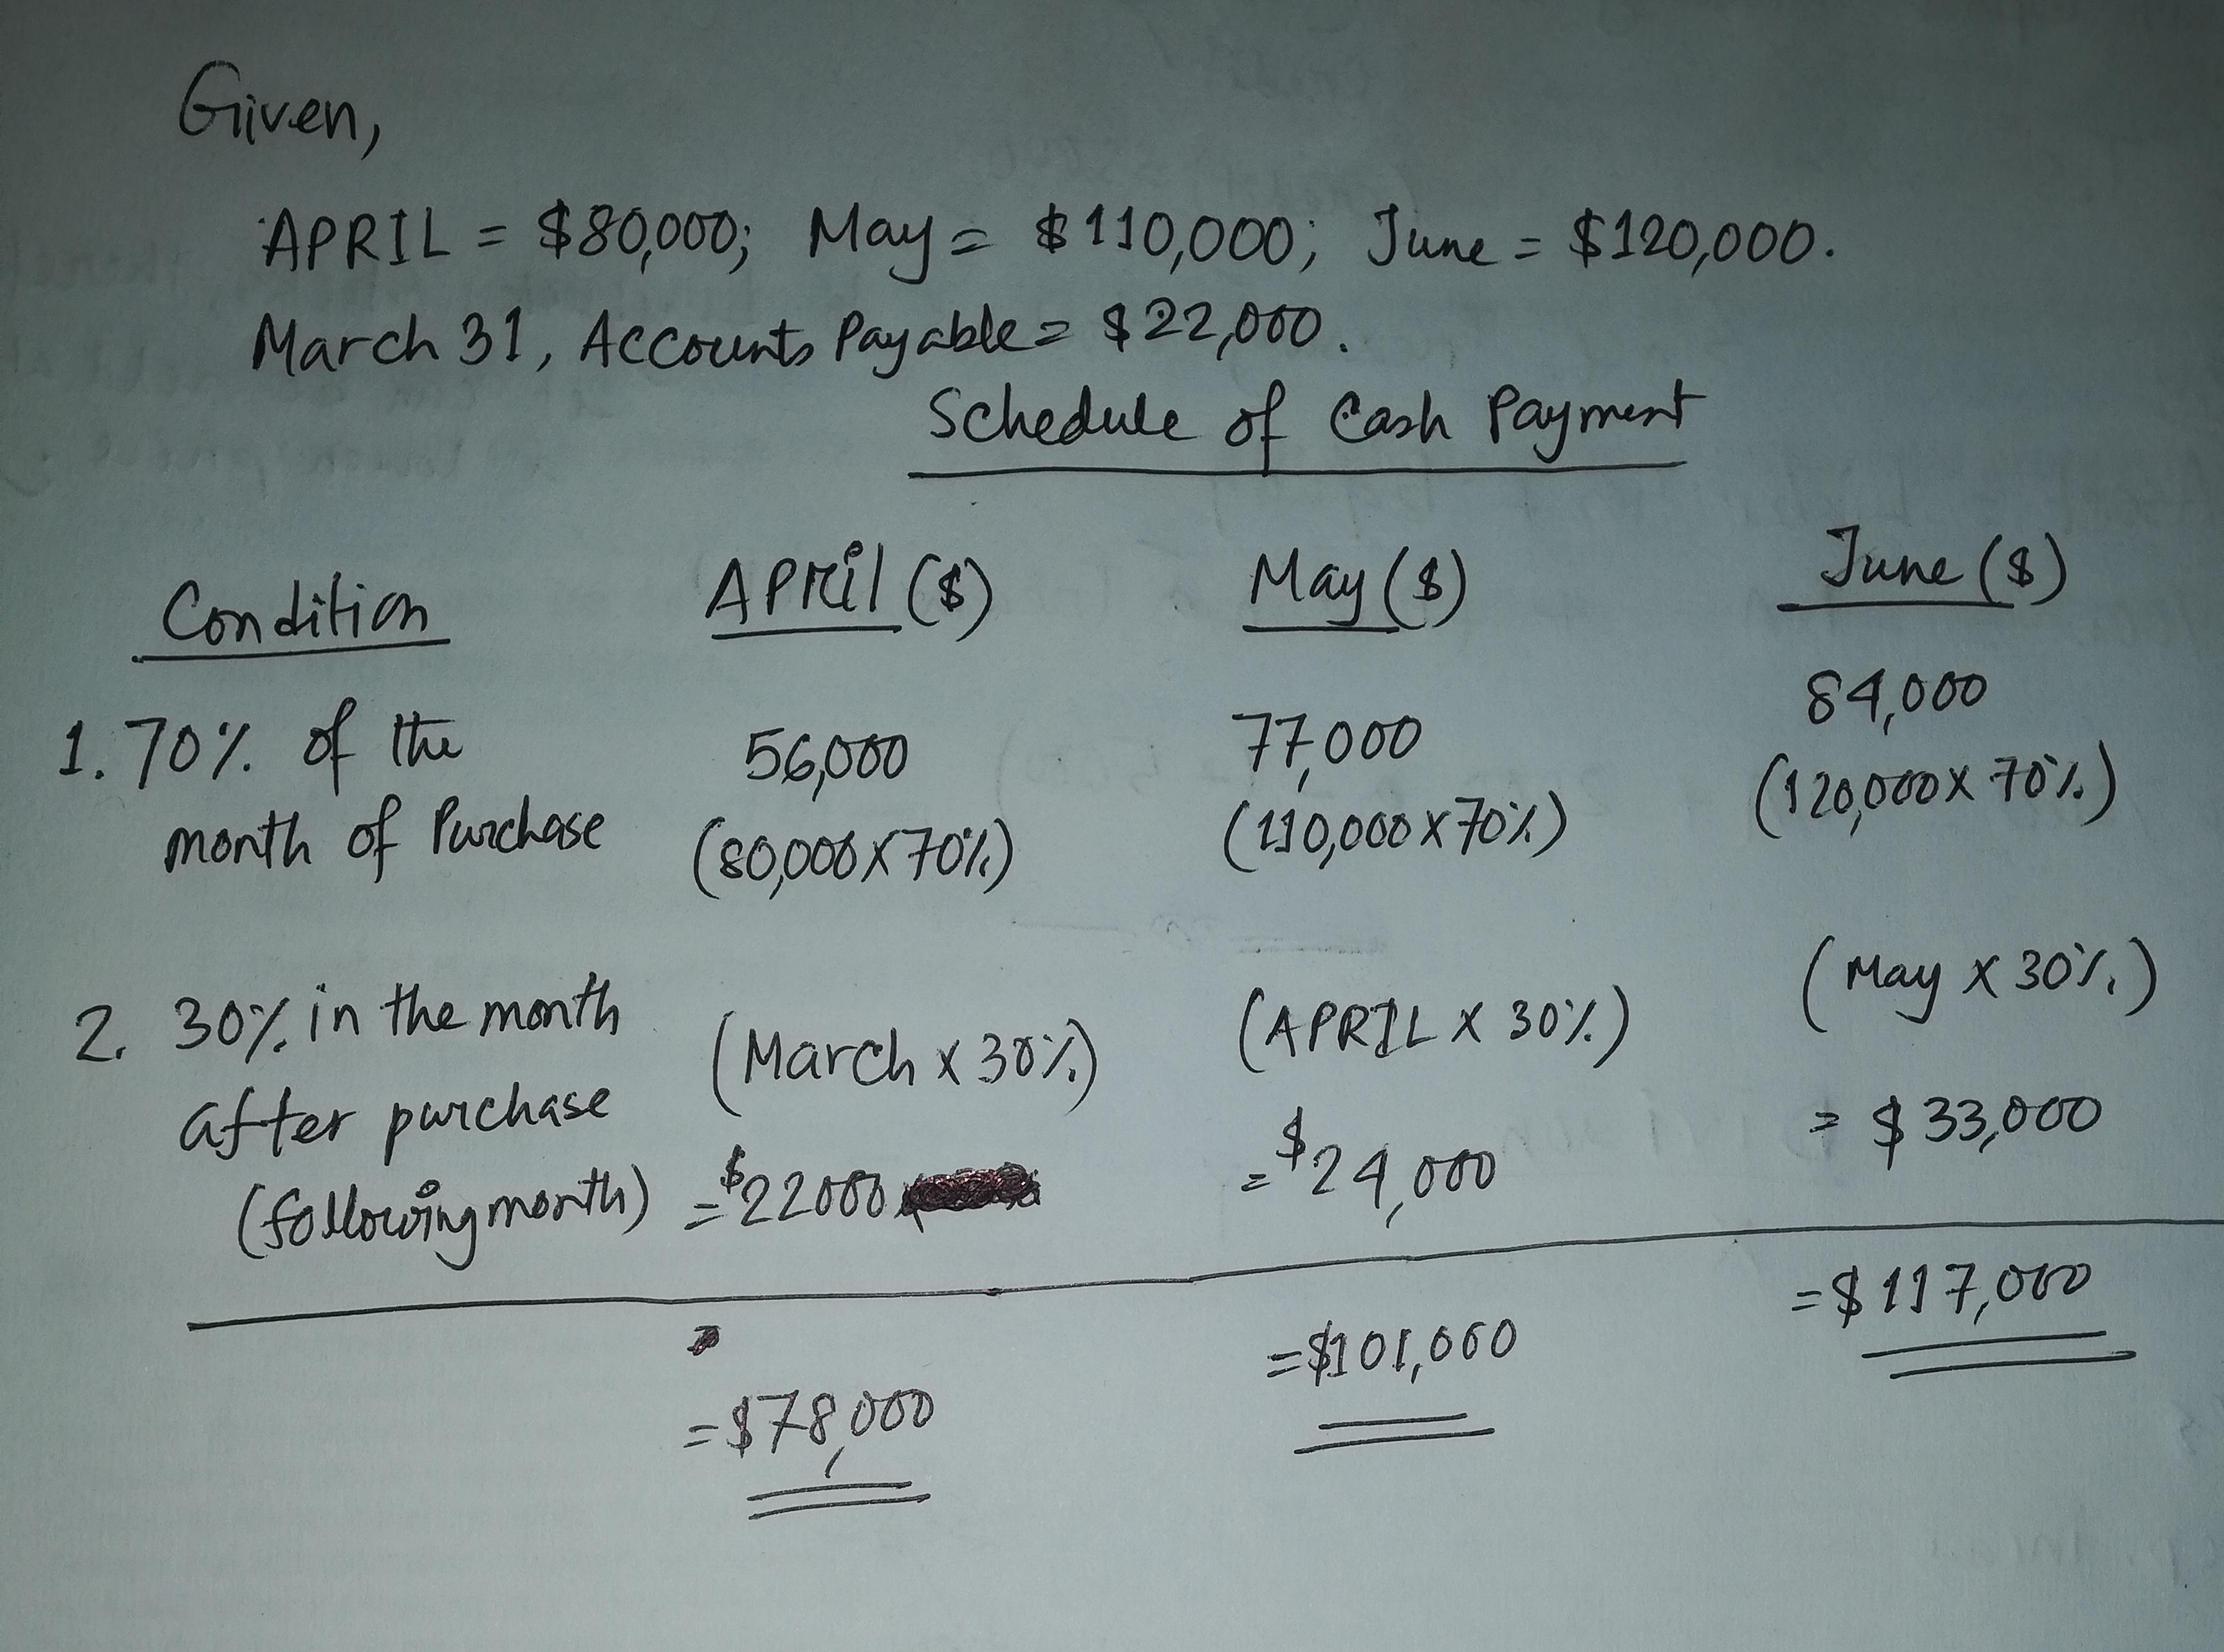 Given,
APRIL = $80,000; May = $110,000; June = $120,000.
March 31, Accounts Payable = $22,000.
Schedule of Cash Payment
Condition APRil ($) May ($) June ($)
1. 70% of the 56,000 77,000 84,000
month of Purchase (80,000 x 70%) (110,000 x 70%) (120,000 x 70%)
2. 30% in the month (March x 30%) (APRIL x 30%) (May x 30%)
after purchase = $ 33,000
(following month) = $22000 = $24,000
= $78,000 = $101,000 = $117,000